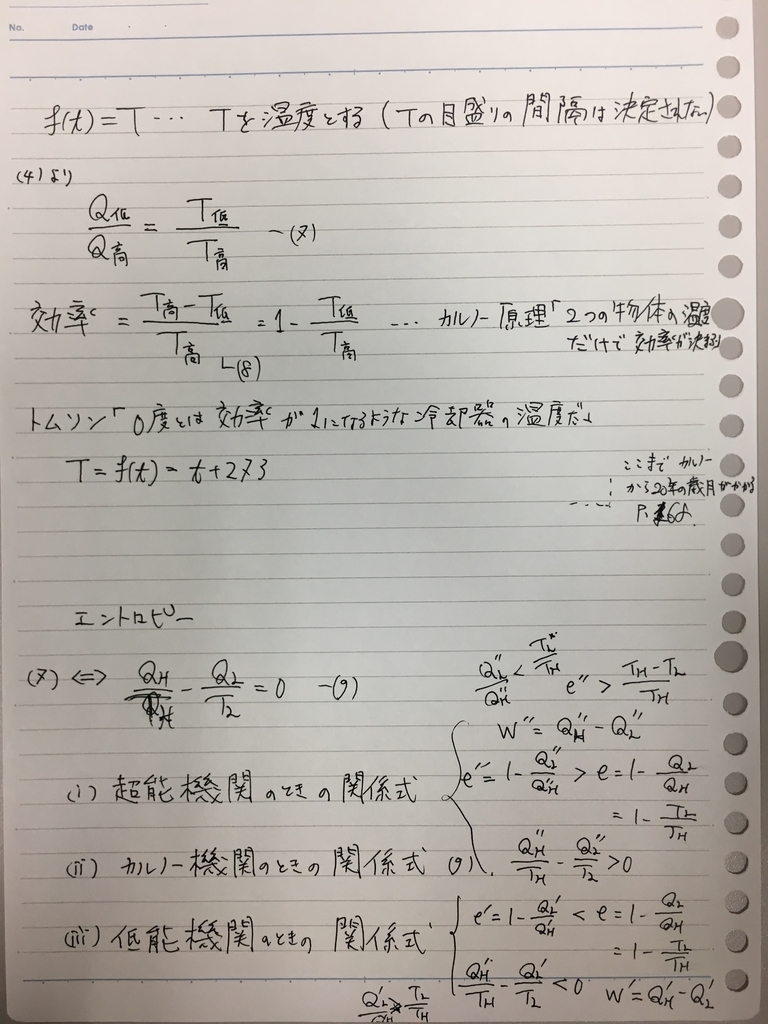 No. Date
f(t) = T … Tを温度とする (Tの目盛りの間隔は決定されない)
(4)より
Q低/Q高 = T低/T高 -(7)
効率 = (T高-T低)/T高 = 1 - T低/T高 … カルノー原理「2つの物体の温度
(8)
だけで効率が決まる」
トムソン「0度とは効率が1になるような冷却器の温度だ」
T = f(t) = t+273
ここまでカルノー
から20年の歳月がかかる
エントロピー
(7) ⇔ QH/TH - QL/TL = 0 -(9)
QL''/QH'' < TL/TH
e'' > (TH-TL)/TH
W'' = QH'' - QL''
(i) 超能機関のときの関係式
e'' = 1 - QL''/QH'' > e = 1 - QL/QH
= 1 - TL/TH
(ii) カルノー機関のときの関係式 (9)
QH''/TH - QL''/TL > 0
(iii) 低能機関のときの関係式
e' = 1 - QL'/QH' < e = 1 - QL/QH
= 1 - TL/TH
QH'/TH - QL'/TL < 0 W' = QH' - QL'
QL'/QH' > TL/TH